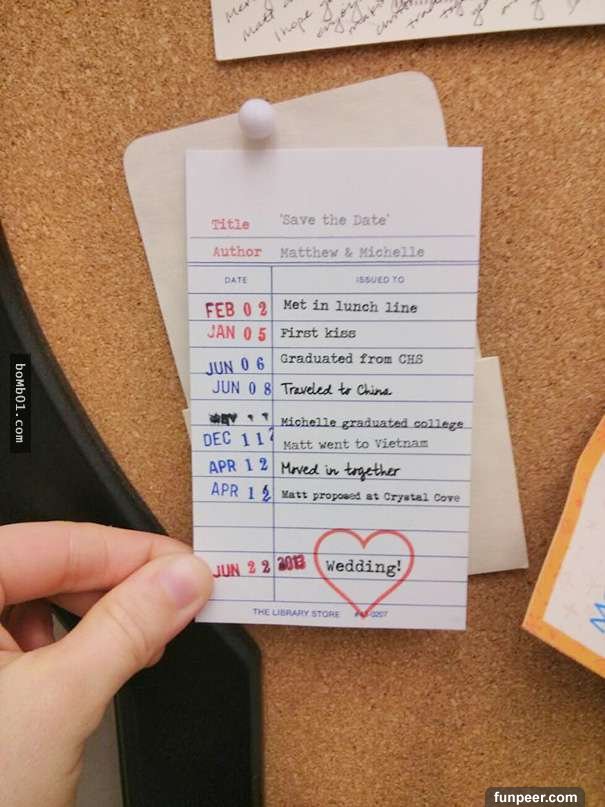 Matt
I hope
enjoy
Title 'Save the Date'
Author Matthew & Michelle
DATE ISSUED TO
FEB 02 Met in lunch line
JAN 05 First kiss
JUN 06 Graduated from CHS
JUN 08 Traveled to China
Michelle graduated college
DEC 11 Matt went to Vietnam
APR 12 Moved in together
APR 12 Matt proposed at Crystal Cove
JUN 22 2013 Wedding!
THE LIBRARY STORE
boMb01.com
funpeer.com